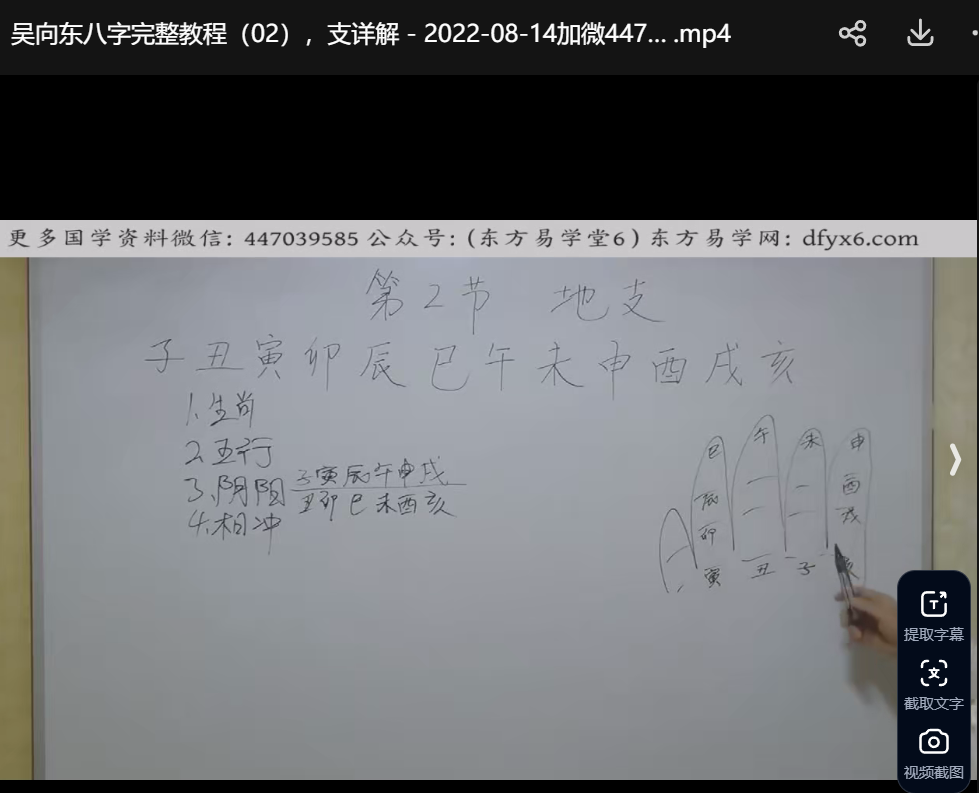 吴向东八字完整教程（02），支详解 - 2022-08-14加微447... .mp4
更多国学资料微信：447039585 公众号：(东方易学堂6) 东方易学网：dfyx6.com
第2节 地支
子丑寅卯辰巳午未申酉戌亥
1.生肖
2.五行
3.阴阳 子寅辰午申戌
丑卯巳未酉亥
4.相冲
巳 午 未 申
辰 酉
卯 戌
寅 丑 子 亥
提取字幕
截取文字
视频截图